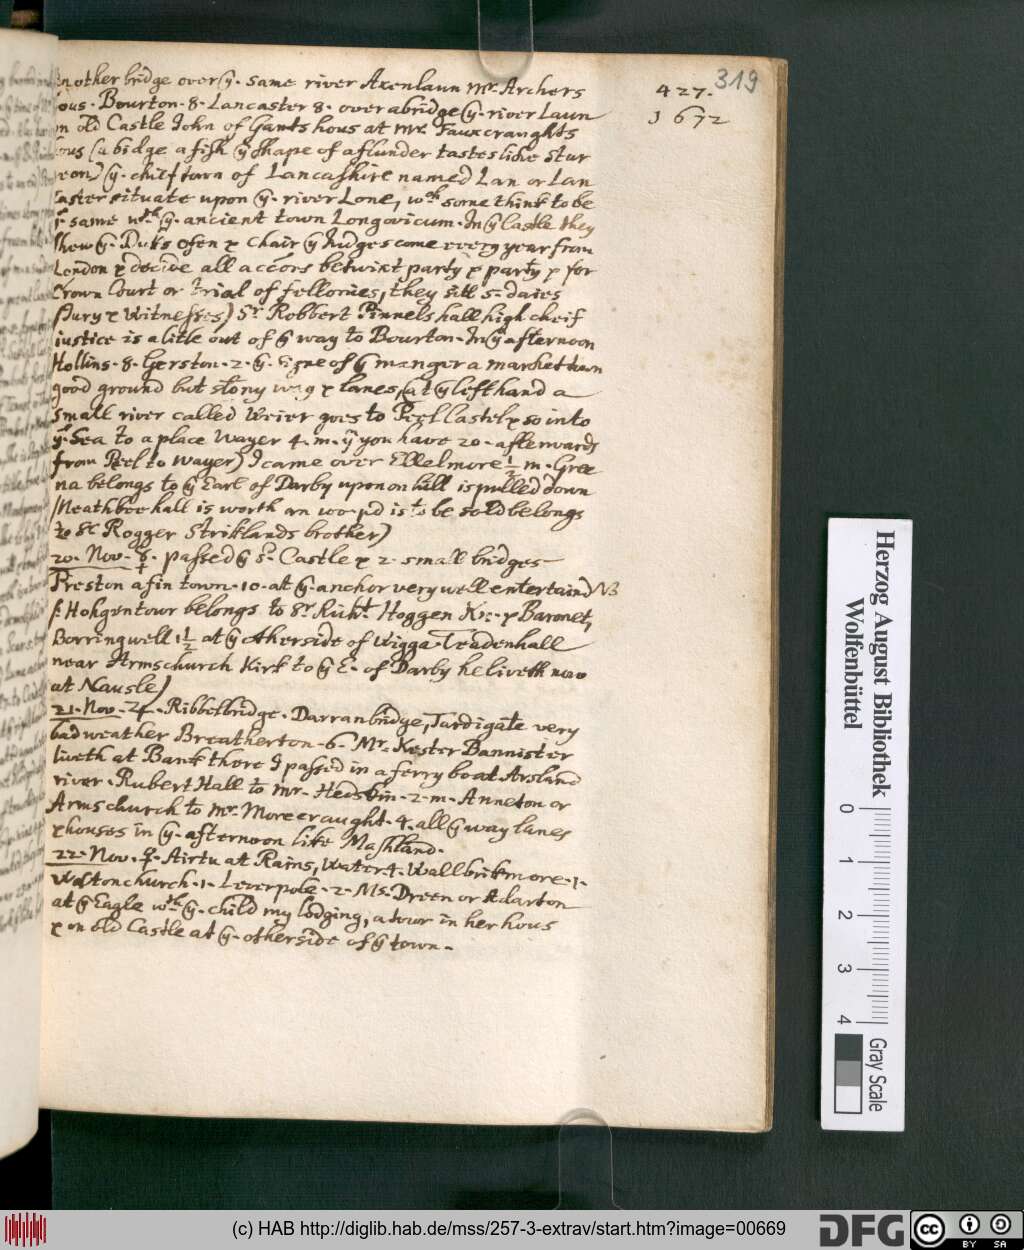 319
427.
1672
another bridge over ÿ. same river Axenlaun Mr. Archers
hous. Bourton. 8. Lancaster 8. over a bridge (ÿ. river Laun
an old Castle John of Gants hous at Mr. Fauxcraughts
hous (a bidge a fish ÿ shape of a flunder tastes like stur
reon) ÿ. chief town of Lancashire named Lan or Lan
caster situate upon ÿ. river Lone, wch some think to be
ÿ same wth ÿ. ancient town Longovicum. In ÿ Castle they
shew ÿ. Duks ofen & chair ÿ Judges come every year from
London & decide all accōrs betwixt party & party & for
Crown Court or trial of fellonies, they sitt 5. daies
(Jury & Witnesses) Sr Robbert Pinnels hall high cheif
justice is a litle out of ÿ way to Bourton. In ÿ afternoon
Hollins. 8. Gerston. 2. ÿ. signe of ÿ manger a market town
good ground but stony way & lanes, (at ÿ left hand a
small river called Weier goes to Peel Castel & so into
ÿ. Sea to a place Wayer 4. m. ÿ you have 20. afterwards
from Peel to Wayer) I came over Ellelmore ½ m. Gree
na belongs to ÿ Earl of Darby upon on hill is pulled down
(Neathbee hall is worth an 100 pd is to be sold belongs
to Sr Rogger Striklands brother)
20. Nov. ☿. passed ÿ sd. Castle & 2. small bridges
Preston a fin town. 10. at ÿ. anchor very well entertaind NB
(Hohgentour belongs to Sr Richt Hoggen Kt: & Baronet,
Borringwell 1½ at ÿ otherside of Wigga Teudenhall
near Armschurch Kirk to ÿ E. of Darby he liveth now
at Nausle)
21. Nov. ♃. Ribbelbridge. Darranbridge, Tardigate very
bad weather Breatherton. 6. Mr. Kester Bannister
liveth at Bank there I passed in a ferry boat Arsland
river. Rubert Hall to Mr. Hedskin. 2. m. Anneton or
Armschurch to Mr. Moreeraught. 4. all ÿ way lanes
& houses in ÿ. afternoon like Mashland.
22. Nov. ♀. Airtu at Rains, Water 4. Wallbrikmore. 1.
Waltonchurch. 1. Leverpole. 2. Ms. Dreen or Adarton
at ÿ Eagle wth ÿ. child my lodging, a tour in her hous
& on old Castle at ÿ. otherside of ÿ town.
Herzog August Bibliothek
Wolfenbüttel
0 1 2 3 4
Gray Scale
(c) HAB http://diglib.hab.de/mss/257-3-extrav/start.htm?image=00669
DFG
cc BY SA